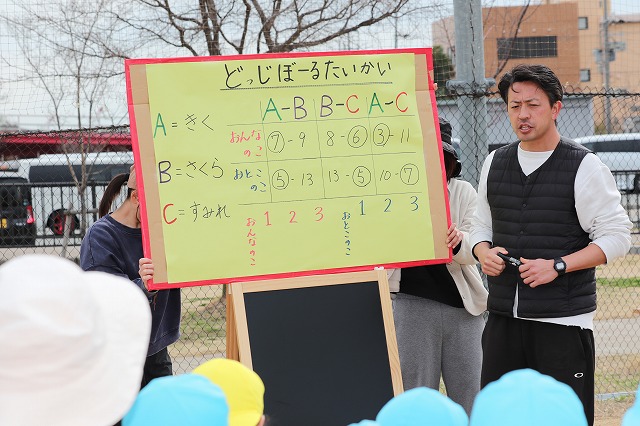 どっじぼーるたいかい
A-B B-C A-C
A=きく
おんなのこ ⑦-9 8-⑥ ③-11
B=さくら
おとこのこ ⑤-13 13-⑤ 10-⑦
C=すみれ
おんなのこ 1 2 3 おとこのこ 1 2 3